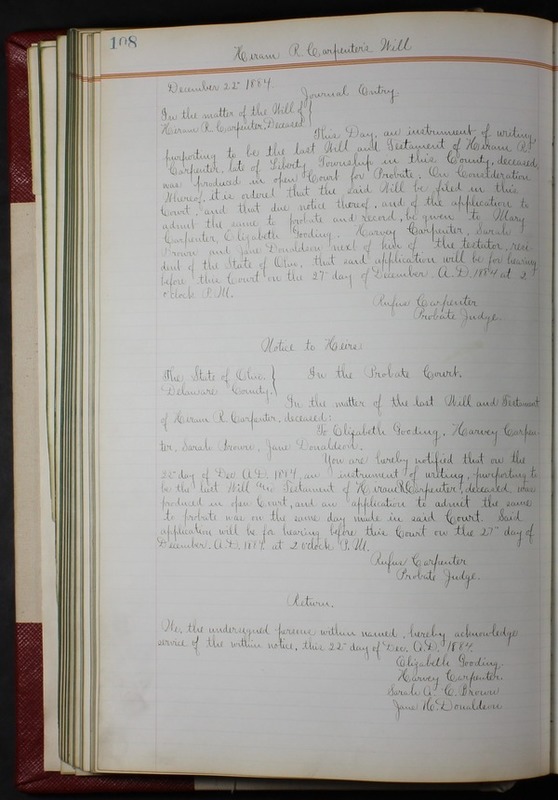 108
Hiram R. Carpenter's Will
December 22nd 1884.
Journal Entry.
In the matter of the Will of
Hiram R. Carpenter, Deceased
This Day, an instrument of writing,
purporting to be the last Will and Testament of Hiram R.
Carpenter, late of Liberty Township in this County, deceased,
was produced in open Court for Probate. On Consideration
Whereof, it is ordered that the said Will be filed in this
Court, and that due notice thereof, and of the application to
admit the same to probate and record, be given to Mary
Carpenter, Elizabeth Gooding, Harvey Carpenter, Sarah
Brown and Jane Donaldson next of kin of the testator, resi
dent of the State of Ohio, that said application will be for hearing
before this Court on the 27th day of December A.D. 1884 at 2
o'clock P.M.
Rufus Carpenter
Probate Judge
Notice to Heirs
The State of Ohio,
Delaware County,
In the Probate Court.
In the matter of the last Will and Testament
of Hiram R. Carpenter, deceased:
To Elizabeth Gooding, Harvey Carpen-
ter, Sarah Brown, Jane Donaldson.
You are hereby notified that on the
22nd day of Dec A.D. 1884, an instrument of writing, purporting to
be the last Will and Testament of Hiram R. Carpenter, deceased, was
produced in open Court, and an application to admit the same
to probate was on the same day made in said Court. Said
application will be for hearing before this Court on the 27th day of
December A.D. 1884 at 2 o'clock P.M.
Rufus Carpenter
Probate Judge.
Return.
We, the undersigned persons within named, hereby acknowledge
service of the within notice, this 22nd day of Dec. A.D. 1884.
Elizabeth Gooding.
Harvey Carpenter.
Sarah A. C. Brown
Jane H. Donaldson